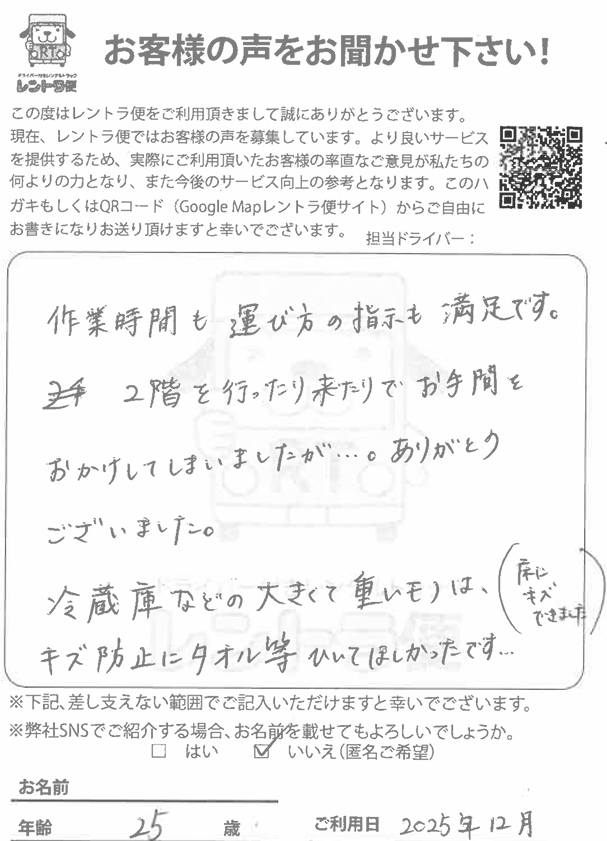 RT
ドライバー付きレンタルトラック
レントラ便
お客様の声をお聞かせ下さい!
この度はレントラ便をご利用頂きまして誠にありがとうございます。
現在、レントラ便ではお客様の声を募集しています。より良いサービス
を提供するため、実際にご利用頂いたお客様の率直なご意見が私たちの
何よりの力となり、また今後のサービス向上の参考となります。このハ
ガキもしくはQRコード（Google Mapレントラ便サイト）からご自由に
お書きになりお送り頂けますと幸いでございます。
担当ドライバー：
作業時間も 運び方の指示も 満足です。
2階を行ったり来たりで お手間を
おかけしてしまいましたが…。ありがとう
ございました。
冷蔵庫などの 大きくて 重いモノは、
(床に
キズ
できました)
キズ防止にタオル等 ひいてほしかったです…
※下記、差し支えない範囲でご記入いただけますと幸いでございます。
※弊社SNSでご紹介する場合、お名前を載せてもよろしいでしょうか。
□ はい ☑ いいえ（匿名ご希望）
お名前
年齢 25 歳 ご利用日 2025年12月